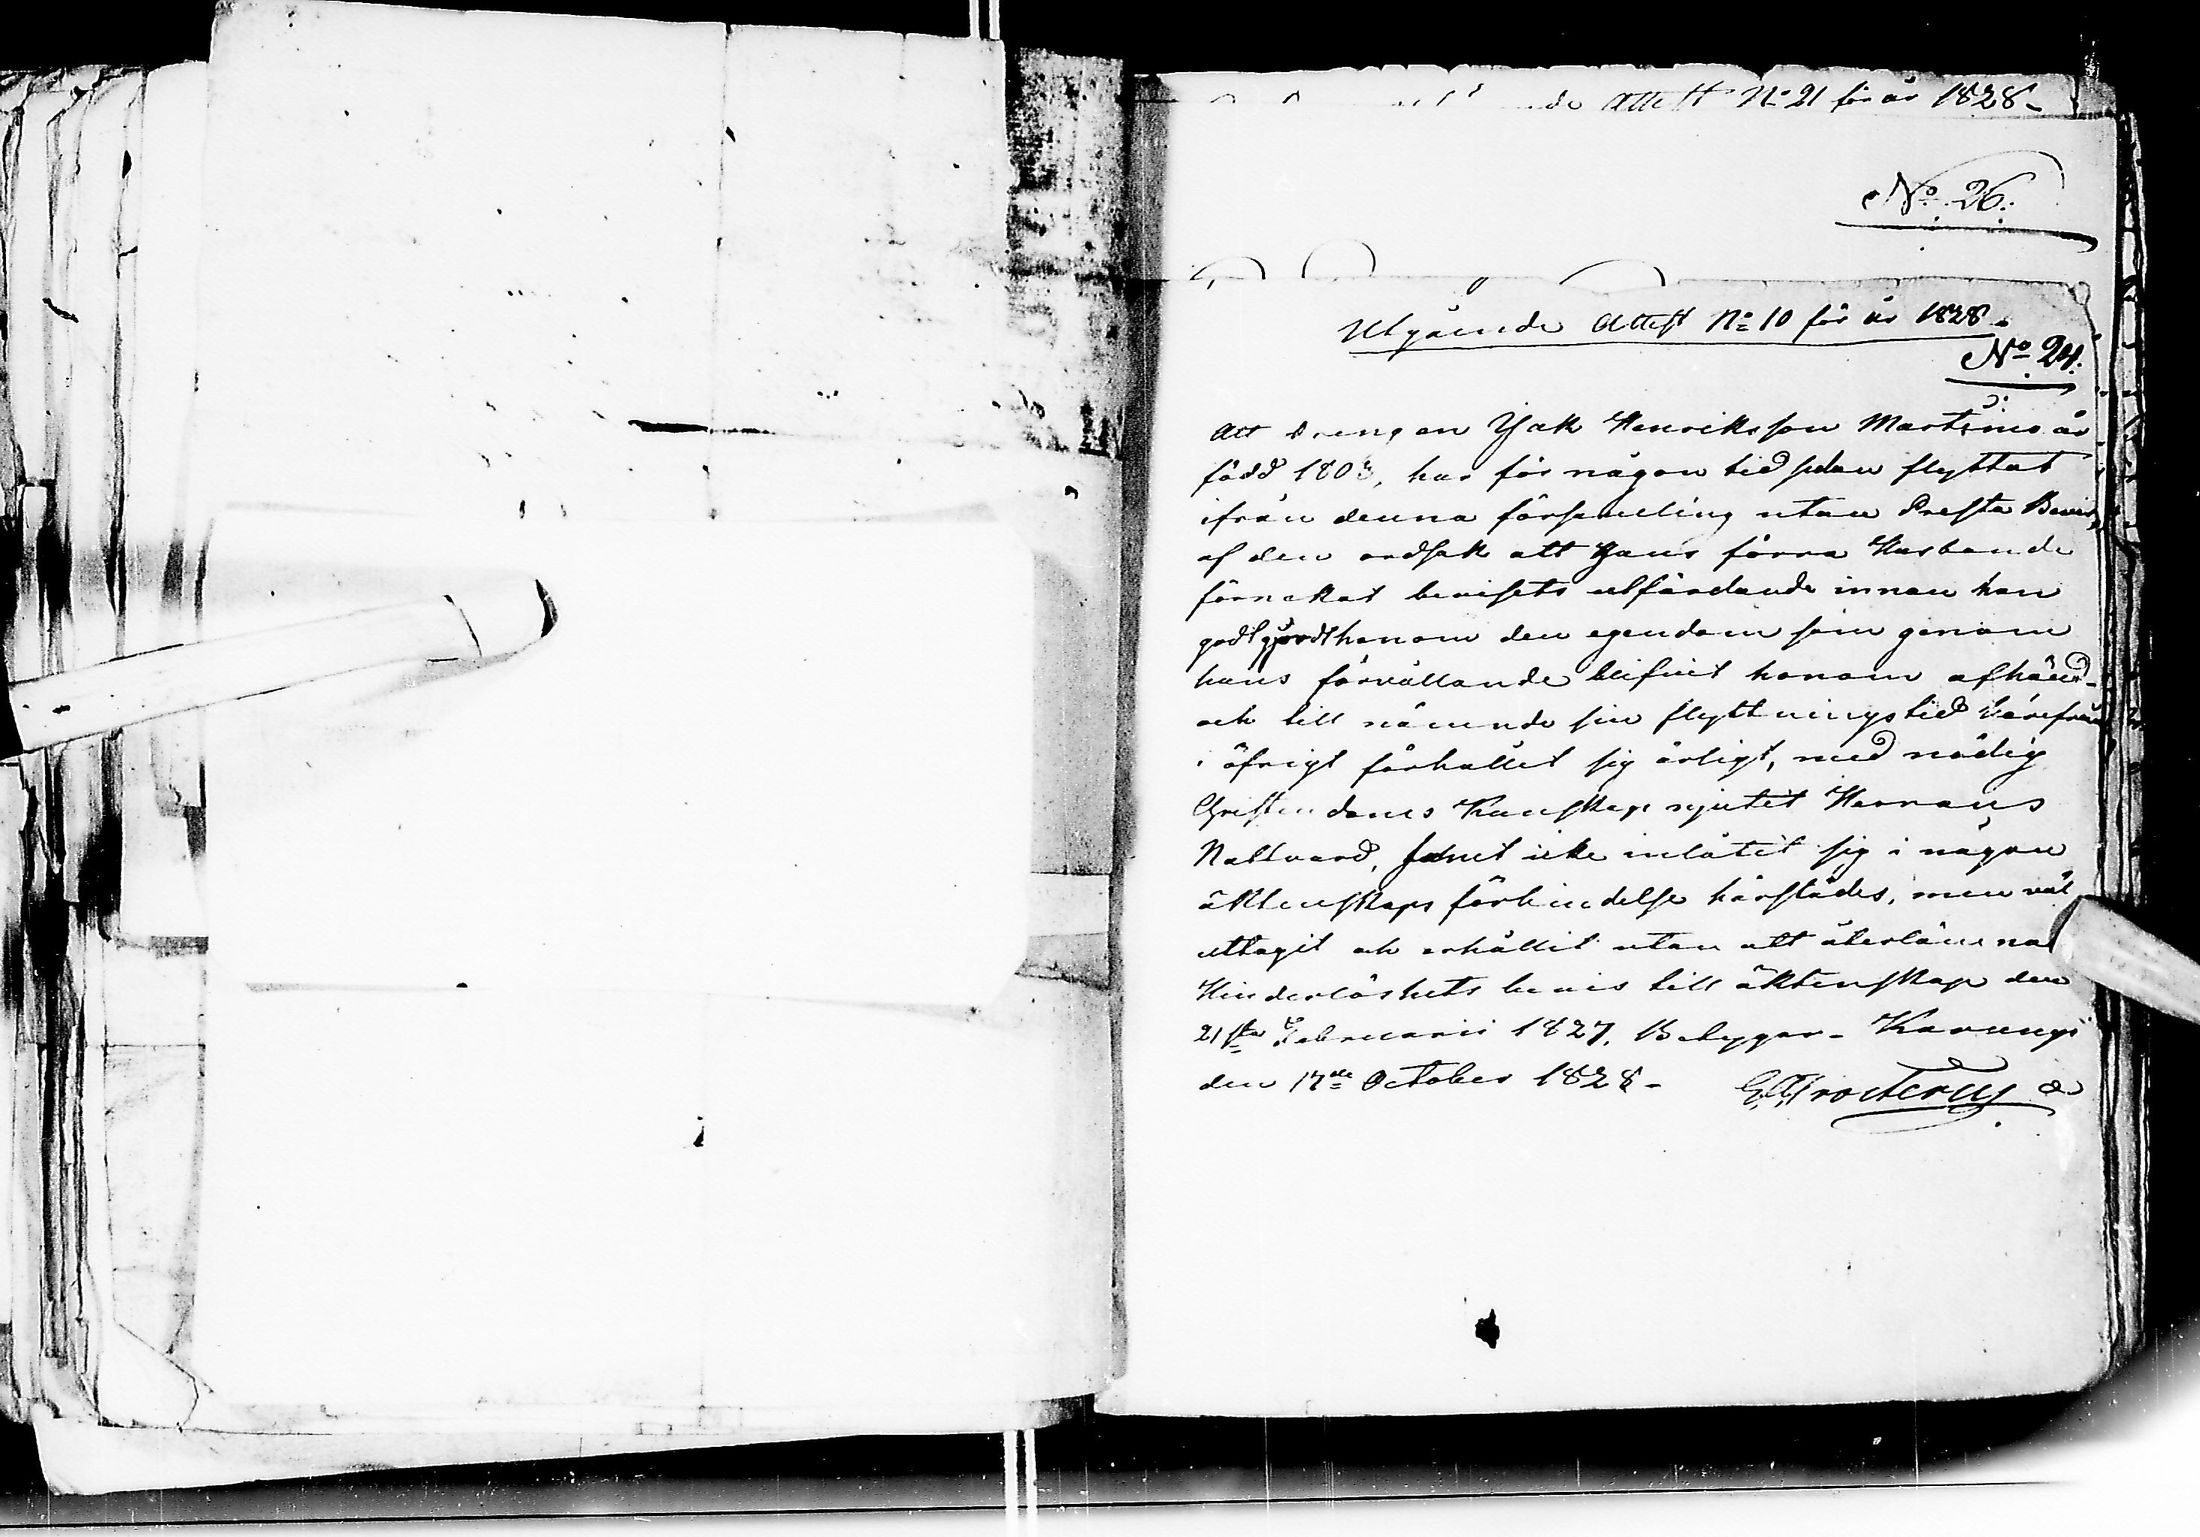 Attest N:o 21 för år 1828-
N:o 26.
Utgående Attest N:o 10 för år 1828.
N:o 24.
Att Drengen Isak Henriksson Martimo är
född 1803, har för någon tid sedan flyttat
ifrån denna församling utan Presta Bevis,
af den ordsak att Hans förra Husbonde
förnekat bevisets utfärdande innan han
godtgjordt honom den egendom som genom
hans förvållande blifvit honom afhänd-
och till nämnde sin flyttningstid härifrån
i öfrigt förhållit sig ärligt, med nödig
Christendoms Kunskap njutit Herrans
Nattvard, icke inlåtit sig i någon
äktenskaps förbindelse härstädes, men väl
uttagit och erhållit utan att återlämna
Hinderlöshets bevis till äktenskap den
21sta Februarii 1827. Betygar- Karungi
den 17de October 1828-